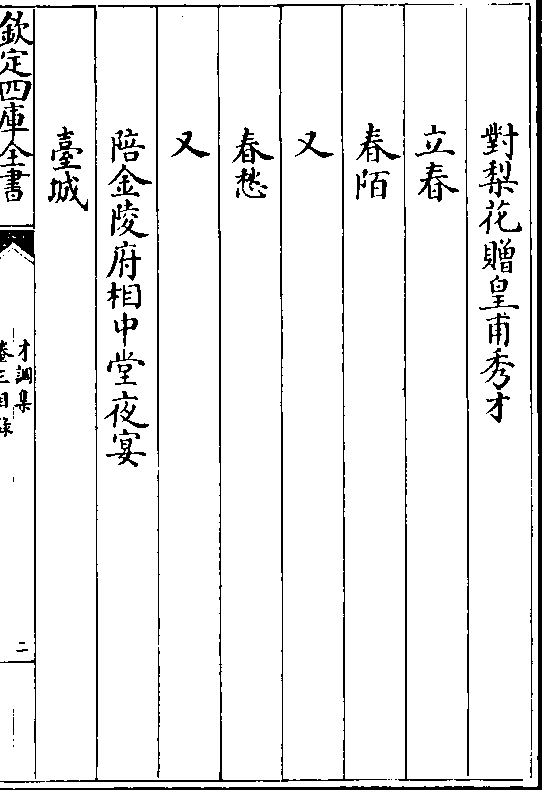 對梨花贈皇甫秀才
立春
春陌
又
春愁
又
陪金陵府相中堂夜宴
臺城
欽定四庫全書
才調集
卷三目錄
二